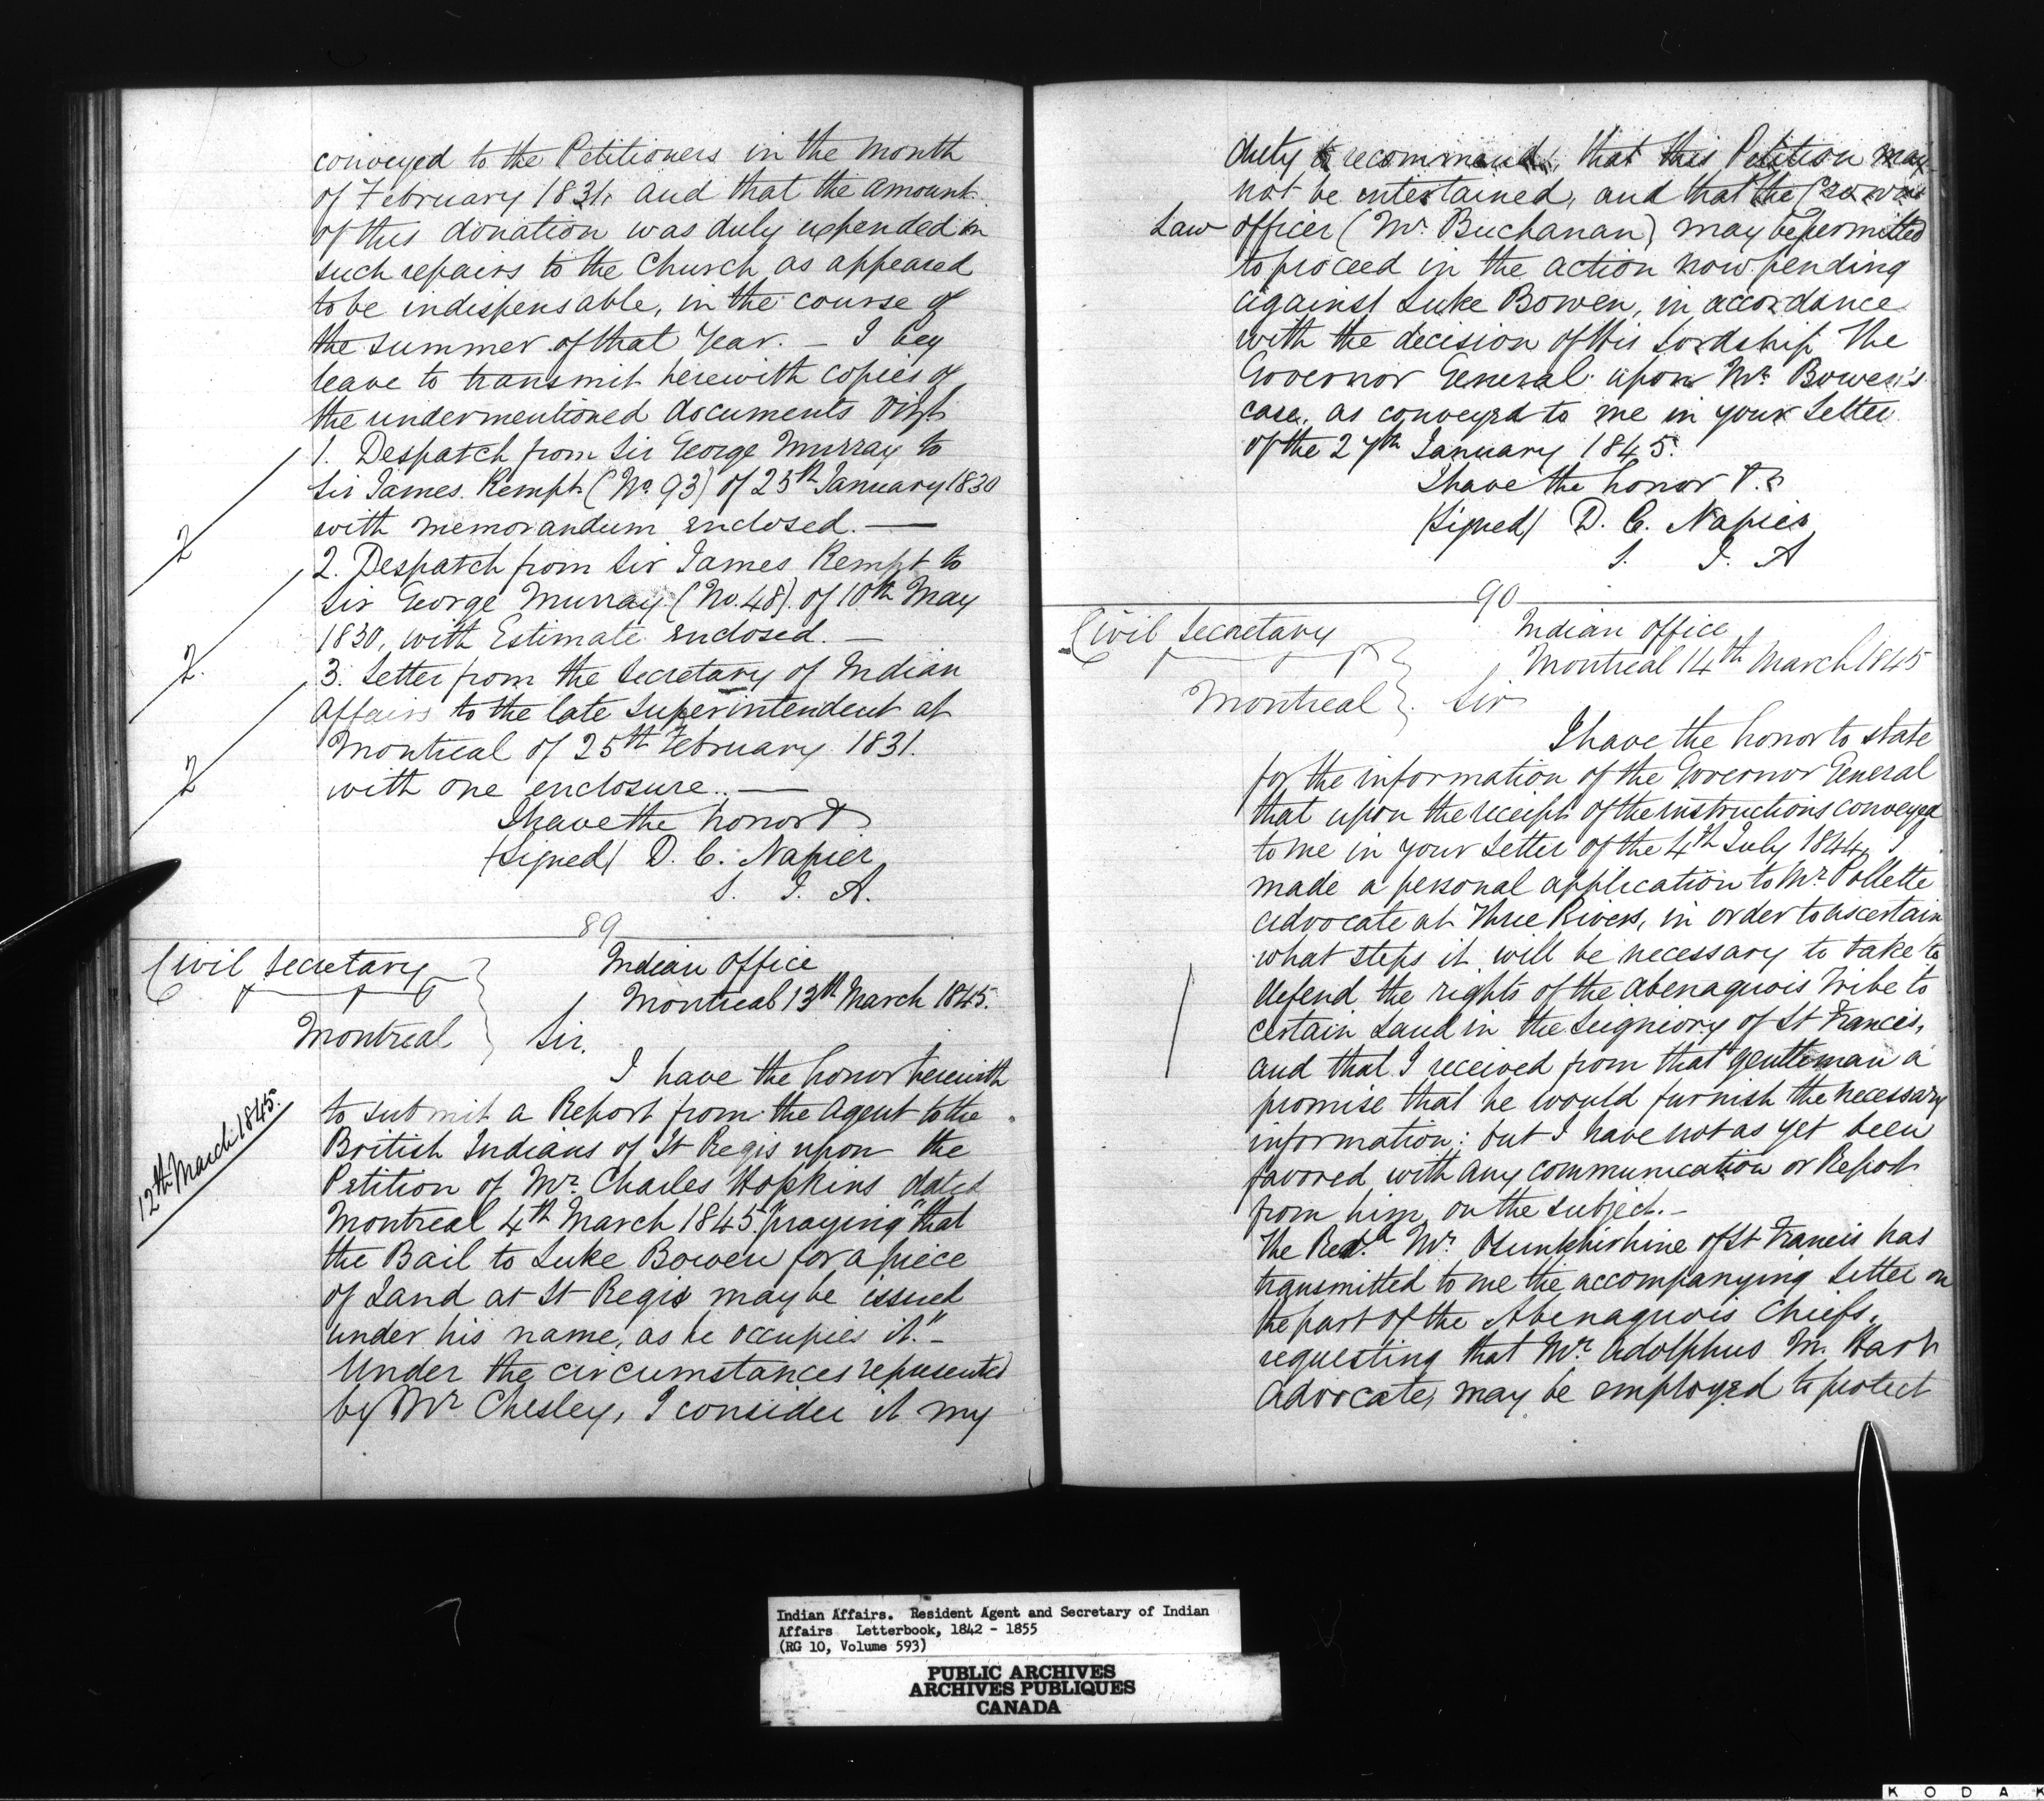 conveyed to the Petitioners in the month
of February 1831, and that the amount
of this donation was duly expended in
such repairs to the Church as appeared
to be indispensable, in the course of
the summer of that Year. — I beg
leave to transmit herewith copies of
the undermentioned documents vizt
1. Despatch from Sir George Murray to
Sir James Kempt (No. 93) of 25th January 1830
with memorandum enclosed. —
2
2. Despatch from Sir James Kempt to
Sir George Murray (No. 48). of 10th May
1830, with Estimate enclosed. —
2.
3. Letter from the Secretary of Indian
Affairs to the late Superintendent at
Montreal of 25th February 1831.
with one enclosure.. —
2
I have the honor &
(Signed) D. C. Napier
S. I. A.
89
Civil Secretary
Montreal
Indian Office
Montreal 13th March 1845.
Sir.
I have the honor herewith
12th March 1845.
to submit a Report from the Agent to the
British Indians of St Regis upon the
Petition of Mr. Charles Hopkins dated
Montreal 4th March 1845. praying "that
the Bail to Luke Bowen for a piece
of Land at St Regis may be issued
under his name, as he occupies it." —
Under the circumstances represented
by Mr Chesley, I consider it my
duty to recommend, that this Petition may
not be entertained, and that the Crown
Law officer (Mr. Buchanan) may be permitted
to proceed in the action now pending
against Luke Bowen, in accordance
with the decision of His Lordship The
Governor General upon Mr. Bowen's
case, as conveyed to me in your Letter
of the 27th January 1845.
I have the honor &.
(Signed) D. C. Napier
S. I. A
90
Civil Secretary
Montreal
Indian Office
Montreal 14th March 1845
Sir
I have the honor to state
for the information of the Governor General
that upon the receipt of the instructions conveyed
to me in your Letter of the 4th July 1844, I
made a personal application to Mr. Pollette
Advocate at Three Rivers, in order to ascertain
what steps it will be necessary to take to
defend the rights of the Abenaquois Tribe to
certain Land in the Seigniory of St Francis,
and that I received from that gentleman a
promise that he would furnish the necessary
information: but I have not as yet been
favored with any communication or Report
from him, on the subject. —
The Revd. Mr. Osunkhirhine of St Francis has
transmitted to me the accompanying Letter on
the part of the Abenaquois Chiefs,
requesting that Mr. Adolphus M. Hart
Advocate, may be employed to protect
Indian Affairs. Resident Agent and Secretary of Indian
Affairs Letterbook, 1842 - 1855
(RG 10, Volume 593)
PUBLIC ARCHIVES
ARCHIVES PUBLIQUES
CANADA
KODAK